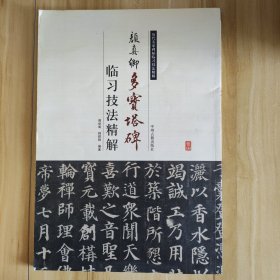 顏真卿
多寶塔碑
临习技法精解
編著
灑以香水隱
竭誠工乃用
於築階所懇
行道衆聞天
喜歎之音聖
寶元載創構
輪禪師理會
帝夢七月十